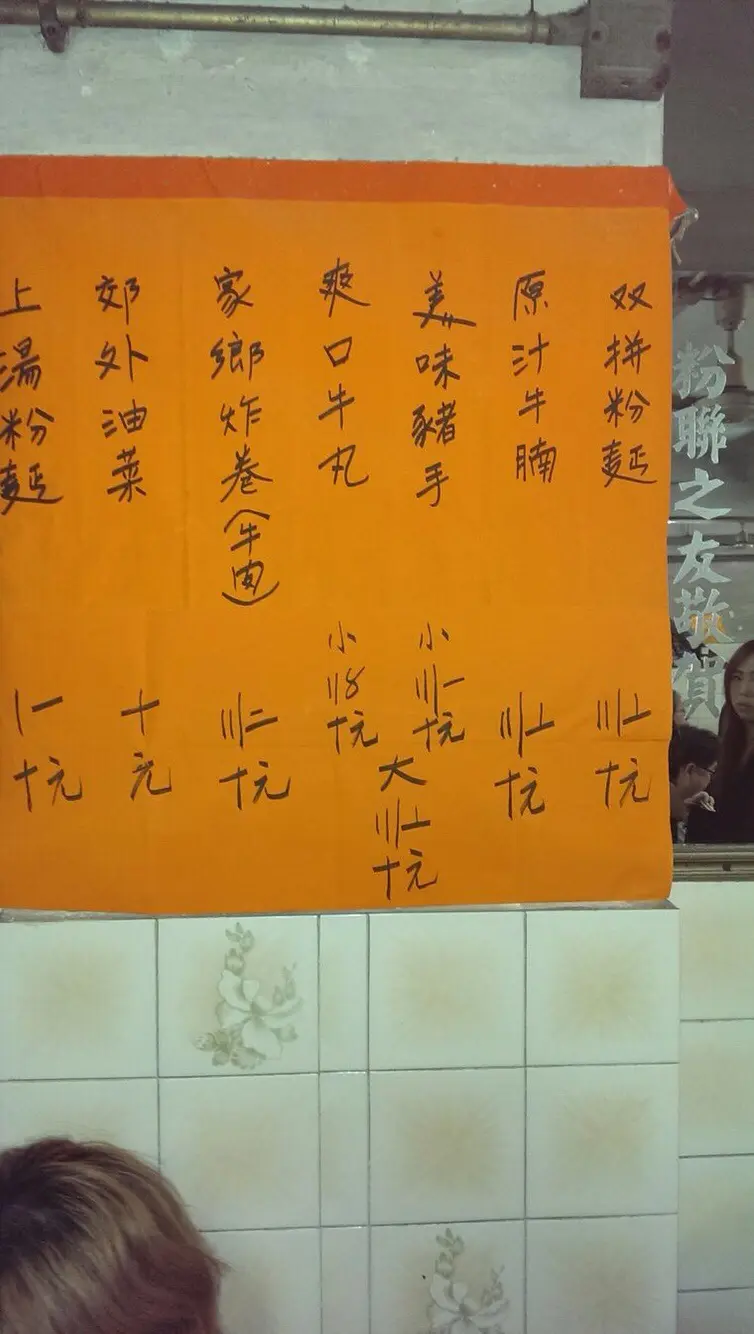 粉聯之友敬賀
双拼粉麵 〣〦十元
原汁牛腩 〣〦十元
美味豬手 小〣一十元
爽口牛丸 小〢〥十元
大〣〦十元
家鄉炸卷(牛肉) 〣二十元
郊外油菜 十元
上湯粉麵 〡一十元